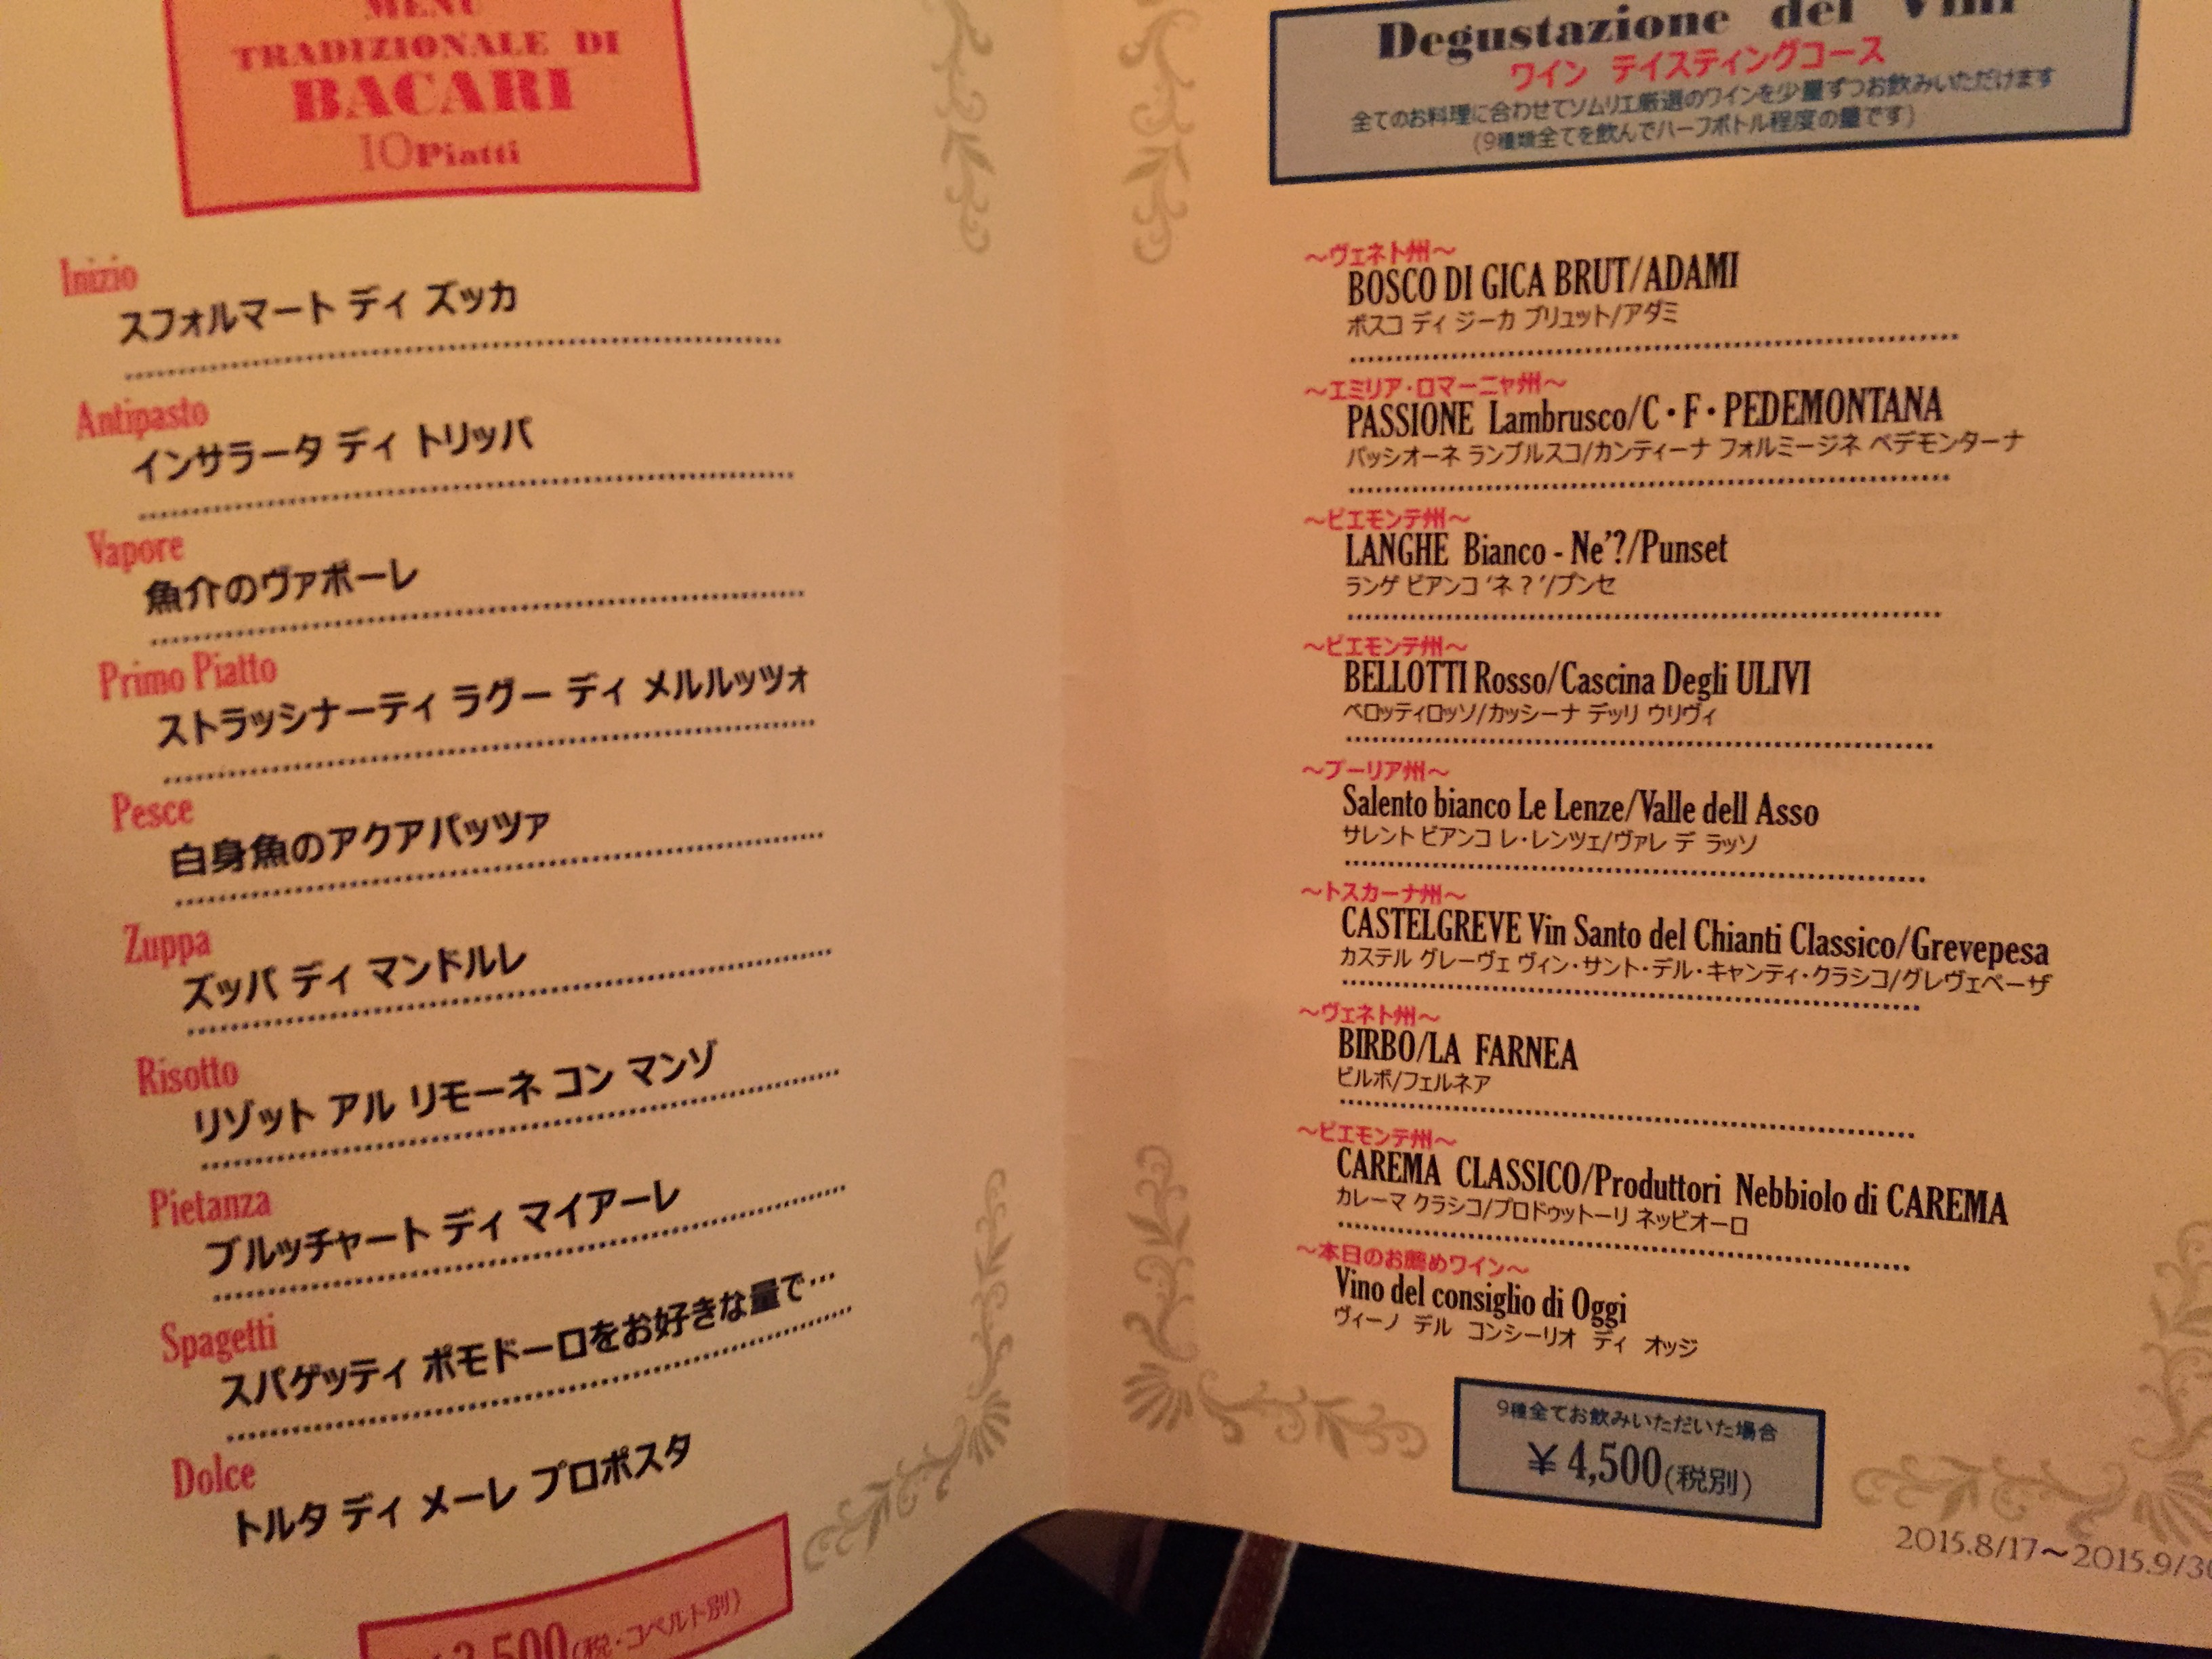 MENU
TRADIZIONALE DI
BACARI
10Piatti
Inizio
スフォルマート ディ ズッカ
Antipasto
インサラータ ディ トリッパ
Vapore
魚介のヴァポーレ
Primo Piatto
ストラッシナーティ ラグー ディ メルルッツォ
Pesce
白身魚のアクアパッツァ
Zuppa
ズッパ ディ マンドルレ
Risotto
リゾット アル リモーネ コン マンゾ
Pietanza
ブルッチャート ディ マイアーレ
Spagetti
スパゲッティ ポモドーロをお好きな量で…
Dolce
トルタ ディ メーレ プロポスタ
3,500(税・コペルト別)
Degustazione dei Vini
ワイン テイスティングコース
全てのお料理に合わせてソムリエ厳選のワインを少量ずつお飲みいただけます
(9種類全てを飲んでハーフボトル程度の量です)
～ヴェネト州～
BOSCO DI GICA BRUT/ADAMI
ボスコ ディ ジーカ ブリュット/アダミ
～エミリア・ロマーニャ州～
PASSIONE Lambrusco/C・F・PEDEMONTANA
パッシオーネ ランブルスコ/カンティーナ フォルミージネ ペデモンターナ
～ピエモンテ州～
LANGHE Bianco - Ne'?/Punset
ランゲ ビアンコ ‘ネ？’/プンセ
～ピエモンテ州～
BELLOTTI Rosso/Cascina Degli ULIVI
ベロッティロッソ/カッシーナ デッリ ウリヴィ
～プーリア州～
Salento bianco Le Lenze/Valle dell Asso
サレント ビアンコ レ・レンツェ/ヴァレ デ ラッソ
～トスカーナ州～
CASTELGREVE Vin Santo del Chianti Classico/Grevepesa
カステル グレーヴェ ヴィン・サント・デル・キャンティ・クラシコ/グレヴェペーザ
～ヴェネト州～
BIRBO/LA FARNEA
ビルボ/フェルネア
～ピエモンテ州～
CAREMA CLASSICO/Produttori Nebbiolo di CAREMA
カレーマ クラシコ/プロドゥットーリ ネッビオーロ
～本日のお薦めワイン～
Vino del consiglio di Oggi
ヴィーノ デル コンシーリオ ディ オッジ
9種全てお飲みいただいた場合
￥4,500(税別)
2015.8/17～2015.9/30